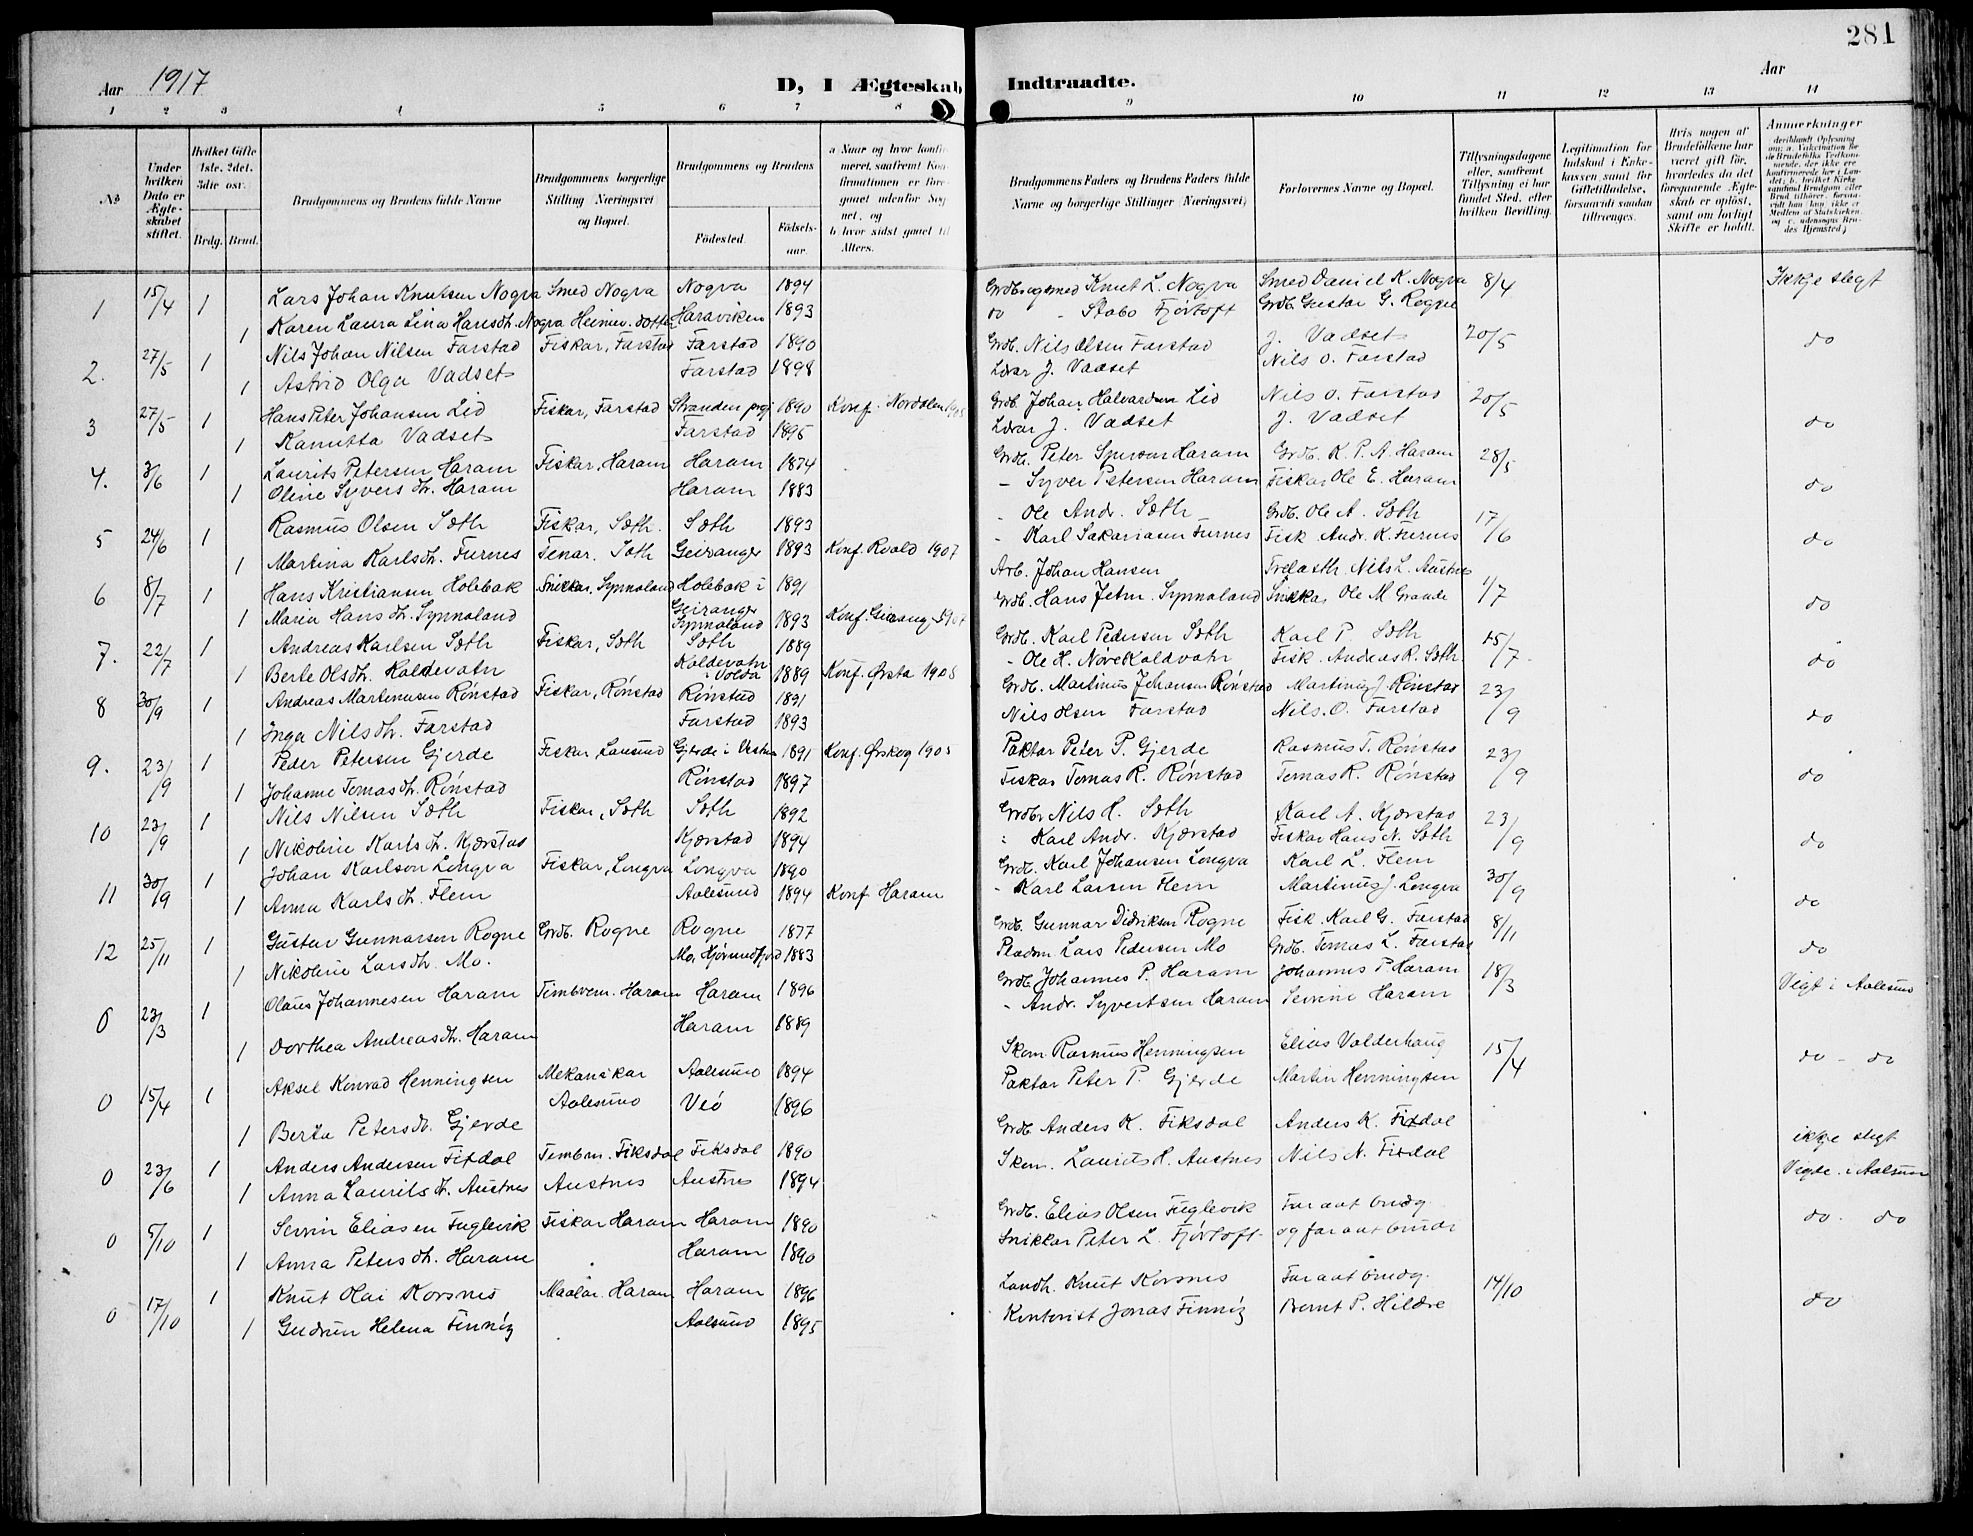 281
Aar 1917 D, I Ægteskab Indtraadte. Aar
1 2 3 4 5 6 7 8 9 10 11 12 13 14
No
Under hvilken Dato er Ægteskabet stiftet.
Hvilket Gifte 1ste, 2det, 3die osv.
Brdg. Brud.
Brudgommens og Brudens fulde Navne
Brudgommens borgerlige Stilling Næringsvei og Bopæl.
Brudgommens og Brudens
Fødested. Fødsels-aar.
a Naar og hvor konfir
meret, saafremt Kon
firmationen er fore
gaaet udenfor Sog
net, og
b hvor sidst gaaet til
Alters.
Brudgommens Faders og Brudens Faders fulde Navne og borgerlige Stillinger (Næringsvei)
Forlovernes Navne og Bopæl.
Tillysningsdagene eller, saafremt Tillysning ei har fundet Sted, efter hvilken Bevilling.
Legitimation for Indskud i Enkekassen samt for Giftetilladelse, forsaavidt saadan tiltrænges.
Hvis nogen af Brudefolkene har været gift før, hvorledes da det foregaaende Ægteskab er opløst, samt om lovligt Skifte er holdt.
Anmerkninger
1 15/4 1 Lars Johan Knutsen Nogva Smed Nogva Nogva 1894 Knut L. Nogva Smed Daniel K. Nogva 8/4 Ikkje slegt
1 Karen Laura Lina Hansdh. Nogva Heimev. dotter Haraviken 1893 do - Stabo Fjørtoft Grdb. Gustav G. Rogne
2. 27/5 1 Nils Johan Nilsen Farstad Fiskar, Farstad Farstad 1890 Grdb. Nils Olsen Farstad J. Vadset 20/5 do
1 Astrid Olga Vadset Farstad 1898 Lærar J. Vadset Nils O. Farstad
3 27/5 1 Hans Peter Johansen Lid Fiskar, Farstad Stranden prgj 1890 Konf. i Norddalen 1905 Grdb. Johan Halvardsen Lid Nils O. Farstad 20/5 do
1 Kanutta Vadset Farstad 1895 Lærar J. Vadset J. Vadset
4. 3/6 1 Laurits Petersen Haram Fiskar, Haram Haram 1874 Grdb. Peter Haram Grdb. K. P. A. Haram 28/5 do
1 Oline Syversdh. Haram Haram 1883 - Syver Petersen Haram Fiskar Ole E. Haram
5 24/6 1 Rasmus Olsen Sæth Fiskar, Sæth. Sæth 1893 - Ole Andr. Sæth Grdb. Ole A. Sæth 17/6 do
1 Martina Karlsdh. Furnes Tenar. Sæth Geiranger 1893 Konf. Roald 1907 - Karl Sakariasen Furnes Fisk. Andr. K. Furnes
6 8/7 1 Hans Kristiansen Holebak Snikkar, Synnaland Holebak i Geiranger 1891 Arb. Johan Hansen Nils L. Austnes 1/7 do
1 Maria Hansdh. Synnaland Synnaland 1893 Grdb. Hans Synnaland Snikkar Ole M Grande
7. 22/7 1 Andreas Karlsen Sæth Fiskar, Sæth Sæth 1889 Grdb. Karl Pedersen Sæth Karl P. Sæth 15/7 do
1 Berte Olsdh. Koldevatn Koldevatn i Volda 1889 Konf. Ørsta 1905 - Ole H. Nøve Koldvatn Fisk. Andreas R. Sæth.
8 30/9 1 Andreas Martinusen Rønstad Fiskar, Rønstad Rønstad 1891 Grdb. Martinus Johansen Rønstad Martinus J. Rønstad 23/9 do
1 Inga Nilsdh. Farstad Farstad 1893 Nils Olsen Farstad Nils. O. Farstad
9. 23/9 1 Peder Petersen Gjerde Fiskar, Gjerde i Vestnes 1891 Konf. Ørskog 1905 Paktar Peter P. Gjerde Rasmus T. Rønstad 23/9 do
1 Johanne Tomasdh. Rønstad Rønstad 1897 Fiskar Tomas R. Rønstad Tomas R. Rønstad
10 23/9 1 Nils Nilsen Sæth Fiskar, Sæth Sæth 1892 Grdbr. Nils H. Sæth Karl A. Kjærstad 23/9 do
1 Nikoline Karlsdh. Kjærstad Kjærstad 1894 - Karl Andr. Kjærstad Fiskar Hans N. Sæth
11 30/9 1 Johan Karlson Longva Fiskar, Longva Longva 1890 Grdb. Karl Johansen Longva Karl L. Flem 30/9 do
1 Anna Karlsdh. Flem Aalesund 1894 Konf Haram - Karl Larsen Flem Martinus J. Longva
12 25/11 1 Gustav Gunnarsen Rogne Grdb. Rogne Rogne 1877 Grdb. Gunnar Didriksen Rogne Fisk. Karl G. Farstad 8/11 do
1 Nikoline Larsdh. Mo. Mo, Hjørundfjord 1883 Pladsm Lars Pedersen Mo Grdb. Tomas L. Farstad
0 23/3 1 Olaus Johannesen Haram Timbrem. Haram Haram 1896 Grdb. Johannes P. Haram Johannes P. Haram 18/3 Vigt i Aalesund
1 Dorthea Andreasdh. Haram Haram 1889 - Andr. Syvertsen Haram Severine Haram
0 15/4 1 Aksel Konrad Henningsen Mekanikar Aalesund 1894 Skom. Rasmus Henningsen Elias Valderhaug 15/4 do - do
1 Berta Petersdh. Gjerde Aalesund Veø 1896 Paktar Peter P. Gjerde Martin Henningsen
0 23/6 1 Anders Andersen Fixdal Tembrm. Fiksdal Fiksdal 1890 Grdb. Anders K. Fiksdal Anders K. Fixdal ikkje slegt
1 Anna Lauritsdh. Austnes Austnes Austnes 1894 Skom. Laurits H. Austnes Nils N. Fixdal Vigde i Aalesund
0 5/10 1 Severin Eliasen Fuglevik Fiskar Haram Haram 1890 Grdb. Elias Olsen Fuglevik Far aat brudg. do. do
1 Anna Petersdh. Haram Haram 1890 Snikkar Peter L. Fjørtoft og far aat brudi
0 17/10 1 Knut Olai Korsnes Maalar. Haram Haram 1896 Landh. Knut Korsnes Far aat brudg. 14/10 do
1 Gudrun Helena Finnöy Aalesund 1895 Kontorist Jonas Finnöy Bernt P. Hildre